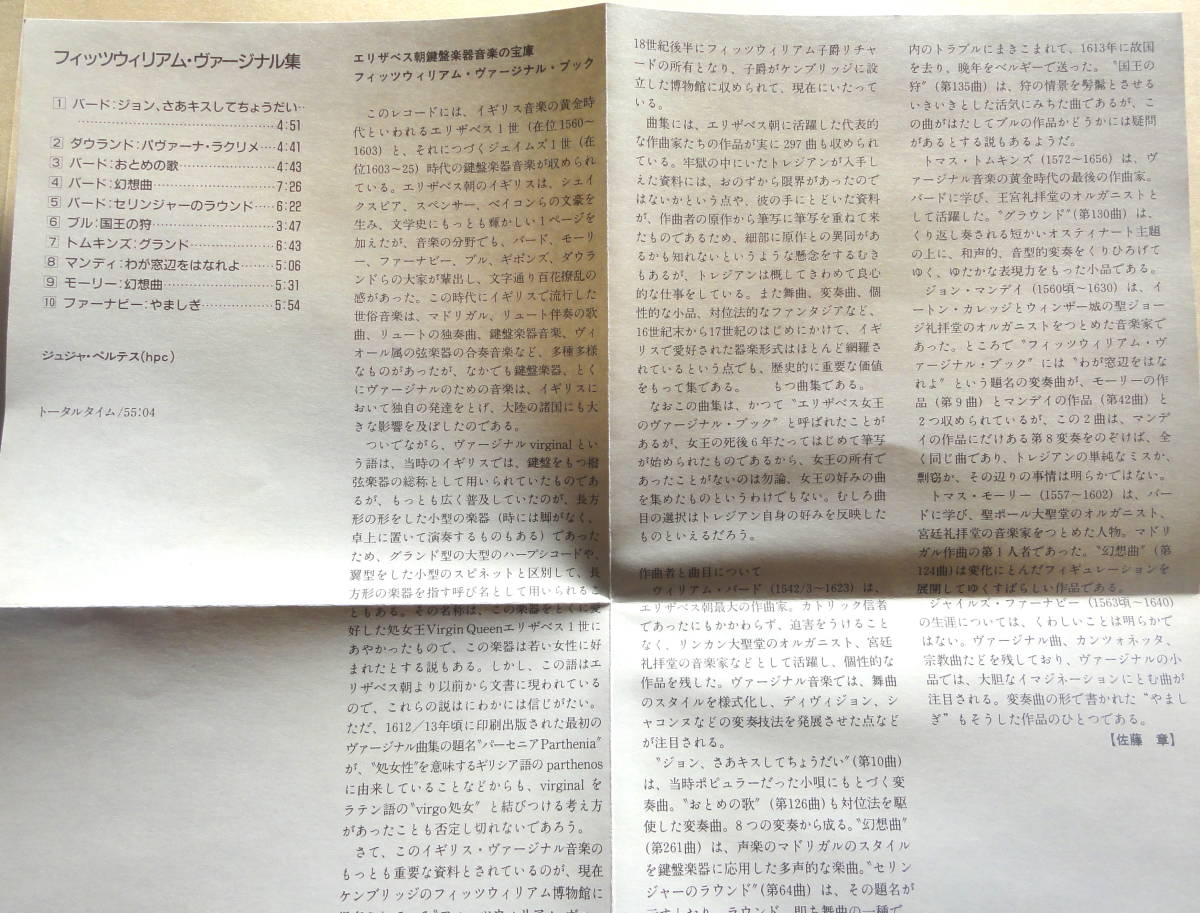 フィッツウィリアム・ヴァージナル集
1 バード：ジョン、さあキスしてちょうだい‥
……………………………………4:51
2 ダウランド：パヴァーナ・ラクリメ…4:41
3 バード：おとめの歌………………4:43
4 バード：幻想曲……………………7:26
5 バード：セリンジャーのラウンド……6:22
6 ブル：国王の狩……………………3:47
7 トムキンズ：グランド………………6:43
8 マンディ：わが窓辺をはなれよ………5:06
9 モーリー：幻想曲…………………5:31
10 ファーナビー：やましぎ……………5:54
ジュジャ・ペルテス(hpc)
トータルタイム/55:04
エリザベス朝鍵盤楽器音楽の宝庫
フィッツウィリアム・ヴァージナル・ブック
このレコードには、イギリス音楽の黄金時
代といわれるエリザベス1世（在位1560〜
1603）と、それにつづくジェイムズ1世（在
位1603〜25）時代の鍵盤楽器音楽が収められ
ている。エリザベス朝のイギリスは、シェイ
クスピア、スペンサー、ベイコンらの文豪を
生み、文学史にもっとも輝かしい1ページを
加えたが、音楽の分野でも、バード、モーリ
ー、ファーナビー、ブル、ギボンズ、ダウラ
ンドらの大家が輩出し、文字通り百花撩乱の
感があった。この時代にイギリスで流行した
世俗音楽は、マドリガル、リュート伴奏の歌
曲、リュートの独奏曲、鍵盤楽器音楽、ヴィ
オール属の弦楽器の合奏音楽など、多種多様
なものがあったが、なかでも鍵盤楽器、とく
にヴァージナルのための音楽は、イギリスに
おいて独自の発達をとげ、大陸の諸国にも大
きな影響を及ぼしたのである。
ついでながら、ヴァージナルvirginalとい
う語は、当時のイギリスでは、鍵盤をもつ撥
弦楽器の総称として用いられていたものであ
るが、もっとも広く普及していたのが、長方
形の形をした小型の楽器（時には脚がなく、
卓上に置いて演奏するものもある）であった
ため、グランド型の大型のハープシコードや、
翼型をした小型のスピネットと区別して、長
方形の楽器を指す呼び名として用いられるこ
ともある。その名称は、この楽器をとくに愛
好した処女王Virgin Queenエリザベス1世に
あやかったもので、この楽器は若い女性に好
まれたとする説もある。しかし、この語はエ
リザベス朝より以前から文書に現われている
ので、これらの説はにわかには信じがたい。
ただ、1612／13年頃に印刷出版された最初の
ヴァージナル曲集の題名〝パーセニアParthenia〟
が、〝処女性〟を意味するギリシア語のparthenos
に由来していることなどからも、virginalを
ラテン語の〝virgo処女〟と結びつける考え方
があったことも否定し切れないであろう。
さて、このイギリス・ヴァージナル音楽の
もっとも重要な資料とされているのが、現在
ケンブリッジのフィッツウィリアム博物館に
18世紀後半にフィッツウィリアム子爵リチャ
ードの所有となり、子爵がケンブリッジに設
立した博物館に収められて、現在にいたって
いる。
曲集には、エリザベス朝に活躍した代表的
な作曲家たちの作品が実に297曲も収められ
ている。牢獄の中にいたトレジアンが入手し
えた資料には、おのずから限界があったので
はないかという点や、彼の手にとどいた資料
が、作曲者の原作から筆写に筆写を重ねて来
たものであるため、細部に原作との異同があ
るかも知れないというような懸念をするむき
もあるが、トレジアンは概してきわめて良心
的な仕事をしている。また舞曲、変奏曲、個
性的な小品、対位法的なファンタジアなど、
16世紀末から17世紀のはじめにかけて、イギ
リスで愛好された器楽形式はほとんど網羅さ
れているという点でも、歴史的に重要な価値
をもって集である。　もつ曲集である。
なおこの曲集は、かつて〝エリザベス女王
のヴァージナル・ブック〟と呼ばれたことが
あるが、女王の死後6年たってはじめて筆写
が始められたものであるから、女王の所有で
あったことがないのは勿論、女王の好みの曲
を集めたものというわけでもない。むしろ曲
目の選択はトレジアン自身の好みを反映した
ものといえるだろう。
作曲者と曲目について
ウィリアム・バード（1542/3〜1623）は、
エリザベス朝最大の作曲家。カトリック信者
であったにもかかわらず、迫害をうけること
なく、リンカン大聖堂のオルガニスト、宮廷
礼拝堂の音楽家などとして活躍し、個性的な
作品を残した。ヴァージナル音楽では、舞曲
のスタイルを様式化し、ディヴィジョン、シ
ャコンヌなどの変奏技法を発展させた点など
が注目される。
〝ジョン、さあキスしてちょうだい〟（第10曲）
は、当時ポピュラーだった小唄にもとづく変
奏曲。〝おとめの歌〟（第126曲）も対位法を駆
使した変奏曲。8つの変奏から成る。〝幻想曲〟
（第261曲）は、声楽のマドリガルのスタイル
を鍵盤楽器に応用した多声的な楽曲。〝セリン
ジャーのラウンド〟（第64曲）は、その題名が
示すしおり、ラウンド、即ち舞曲の一種で
内のトラブルにまきこまれて、1613年に故国
を去り、晩年をベルギーで送った。〝国王の
狩〟（第135曲）は、狩の情景を髣髴とさせる
いきいきとした活気にみちた曲であるが、こ
の曲がはたしてブルの作品かどうかには疑問
があるとする説もあるようだ。
トマス・トムキンズ（1572〜1656）は、ヴ
ァージナル音楽の黄金時代の最後の作曲家。
バードに学び、王宮礼拝堂のオルガニストと
して活躍した。〝グラウンド〟（第130曲）は、
くり返し奏される短かいオスティナート主題
の上に、和声的、音型的変奏をくりひろげて
ゆく、ゆたかな表現力をもった小品である。
ジョン・マンデイ（1560頃〜1630）は、イ
ートン・カレッジとウィンザー城の聖ジョー
ジ礼拝堂のオルガニストをつとめた音楽家で
あった。ところで〝フィッツウィリアム・ヴ
ァージナル・ブック〟には〝わが窓辺をはな
れよ〟という題名の変奏曲が、モーリーの作
品（第9曲）とマンデイの作品（第42曲）と
2つ収められているが、この2曲は、マンデ
イの作品にだけある第8変奏をのぞけば、全
く同じ曲であり、トレジアンの単純なミスか、
剽窃か、その辺りの事情は明らかではない。
トマス・モーリー（1557〜1602）は、バー
ドに学び、聖ポール大聖堂のオルガニスト、
宮廷礼拝堂の音楽家をつとめた人物。マドリ
ガル作曲の第1人者であった。〝幻想曲〟（第
124曲）は変化にとんだフィギュレーションを
展開してゆくすばらしい作品である。
ジャイルズ・ファーナビー（1563頃〜1640）
の生涯については、くわしいことは明らかで
はない。ヴァージナル曲、カンツォネッタ、
宗教曲たどを残しており、ヴァージナルの小
品では、大胆なイマジネーションにとむ曲が
注目される。変奏曲の形で書かれた〝やまし
ぎ〟もそうした作品のひとつである。
【佐藤　章】